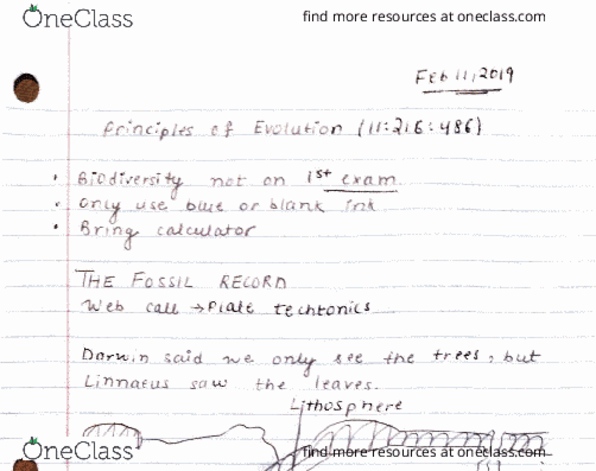 OneClass
find more resources at oneclass.com
Feb 11, 2019
Principles of Evolution (11:216:486)
• Biodiversity not on 1st exam
• Only use blue or blank ink
• Bring calculator
THE FOSSIL RECORD
Web call → Plate techtonics
Darwin said we only see the trees, but
Linnaeus saw the leaves.
Lithosphere
OneClass
find more resources at oneclass.com